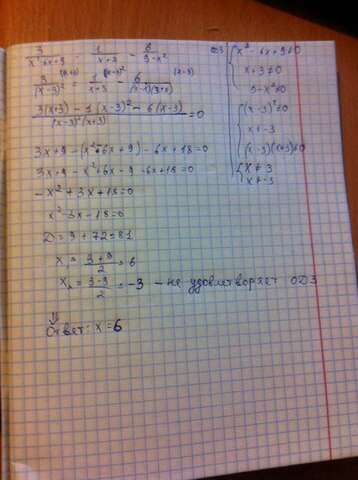 3/(x²-6x+9) - 1/(x+3) = 6/(9-x²)
ОДЗ { x²-6x+9≠0
x+3≠0
9-x²≠0
3 (x+3)/(x-3)² - 1 (x-3)²/(x+3) - 6 (x-3)/((x-3)(3+x))
(x-3)²≠0
x≠-3
(x-3)(x+3)≠0
{ x≠3
x≠-3
(3(x+3) - 1(x-3)² - 6(x-3))/((x-3)²(x+3)) = 0
3x+9-(x²-6x+9)-6x+18=0
3x+9-x²+6x-9-6x+18=0
-x²+3x+18=0
x²-3x-18=0
D=9+72=81
x₁ = (3+9)/2 = 6
x₂ = (3-9)/2 = -3 - не удовлетворяет ОДЗ
⇓
Ответ: x=6